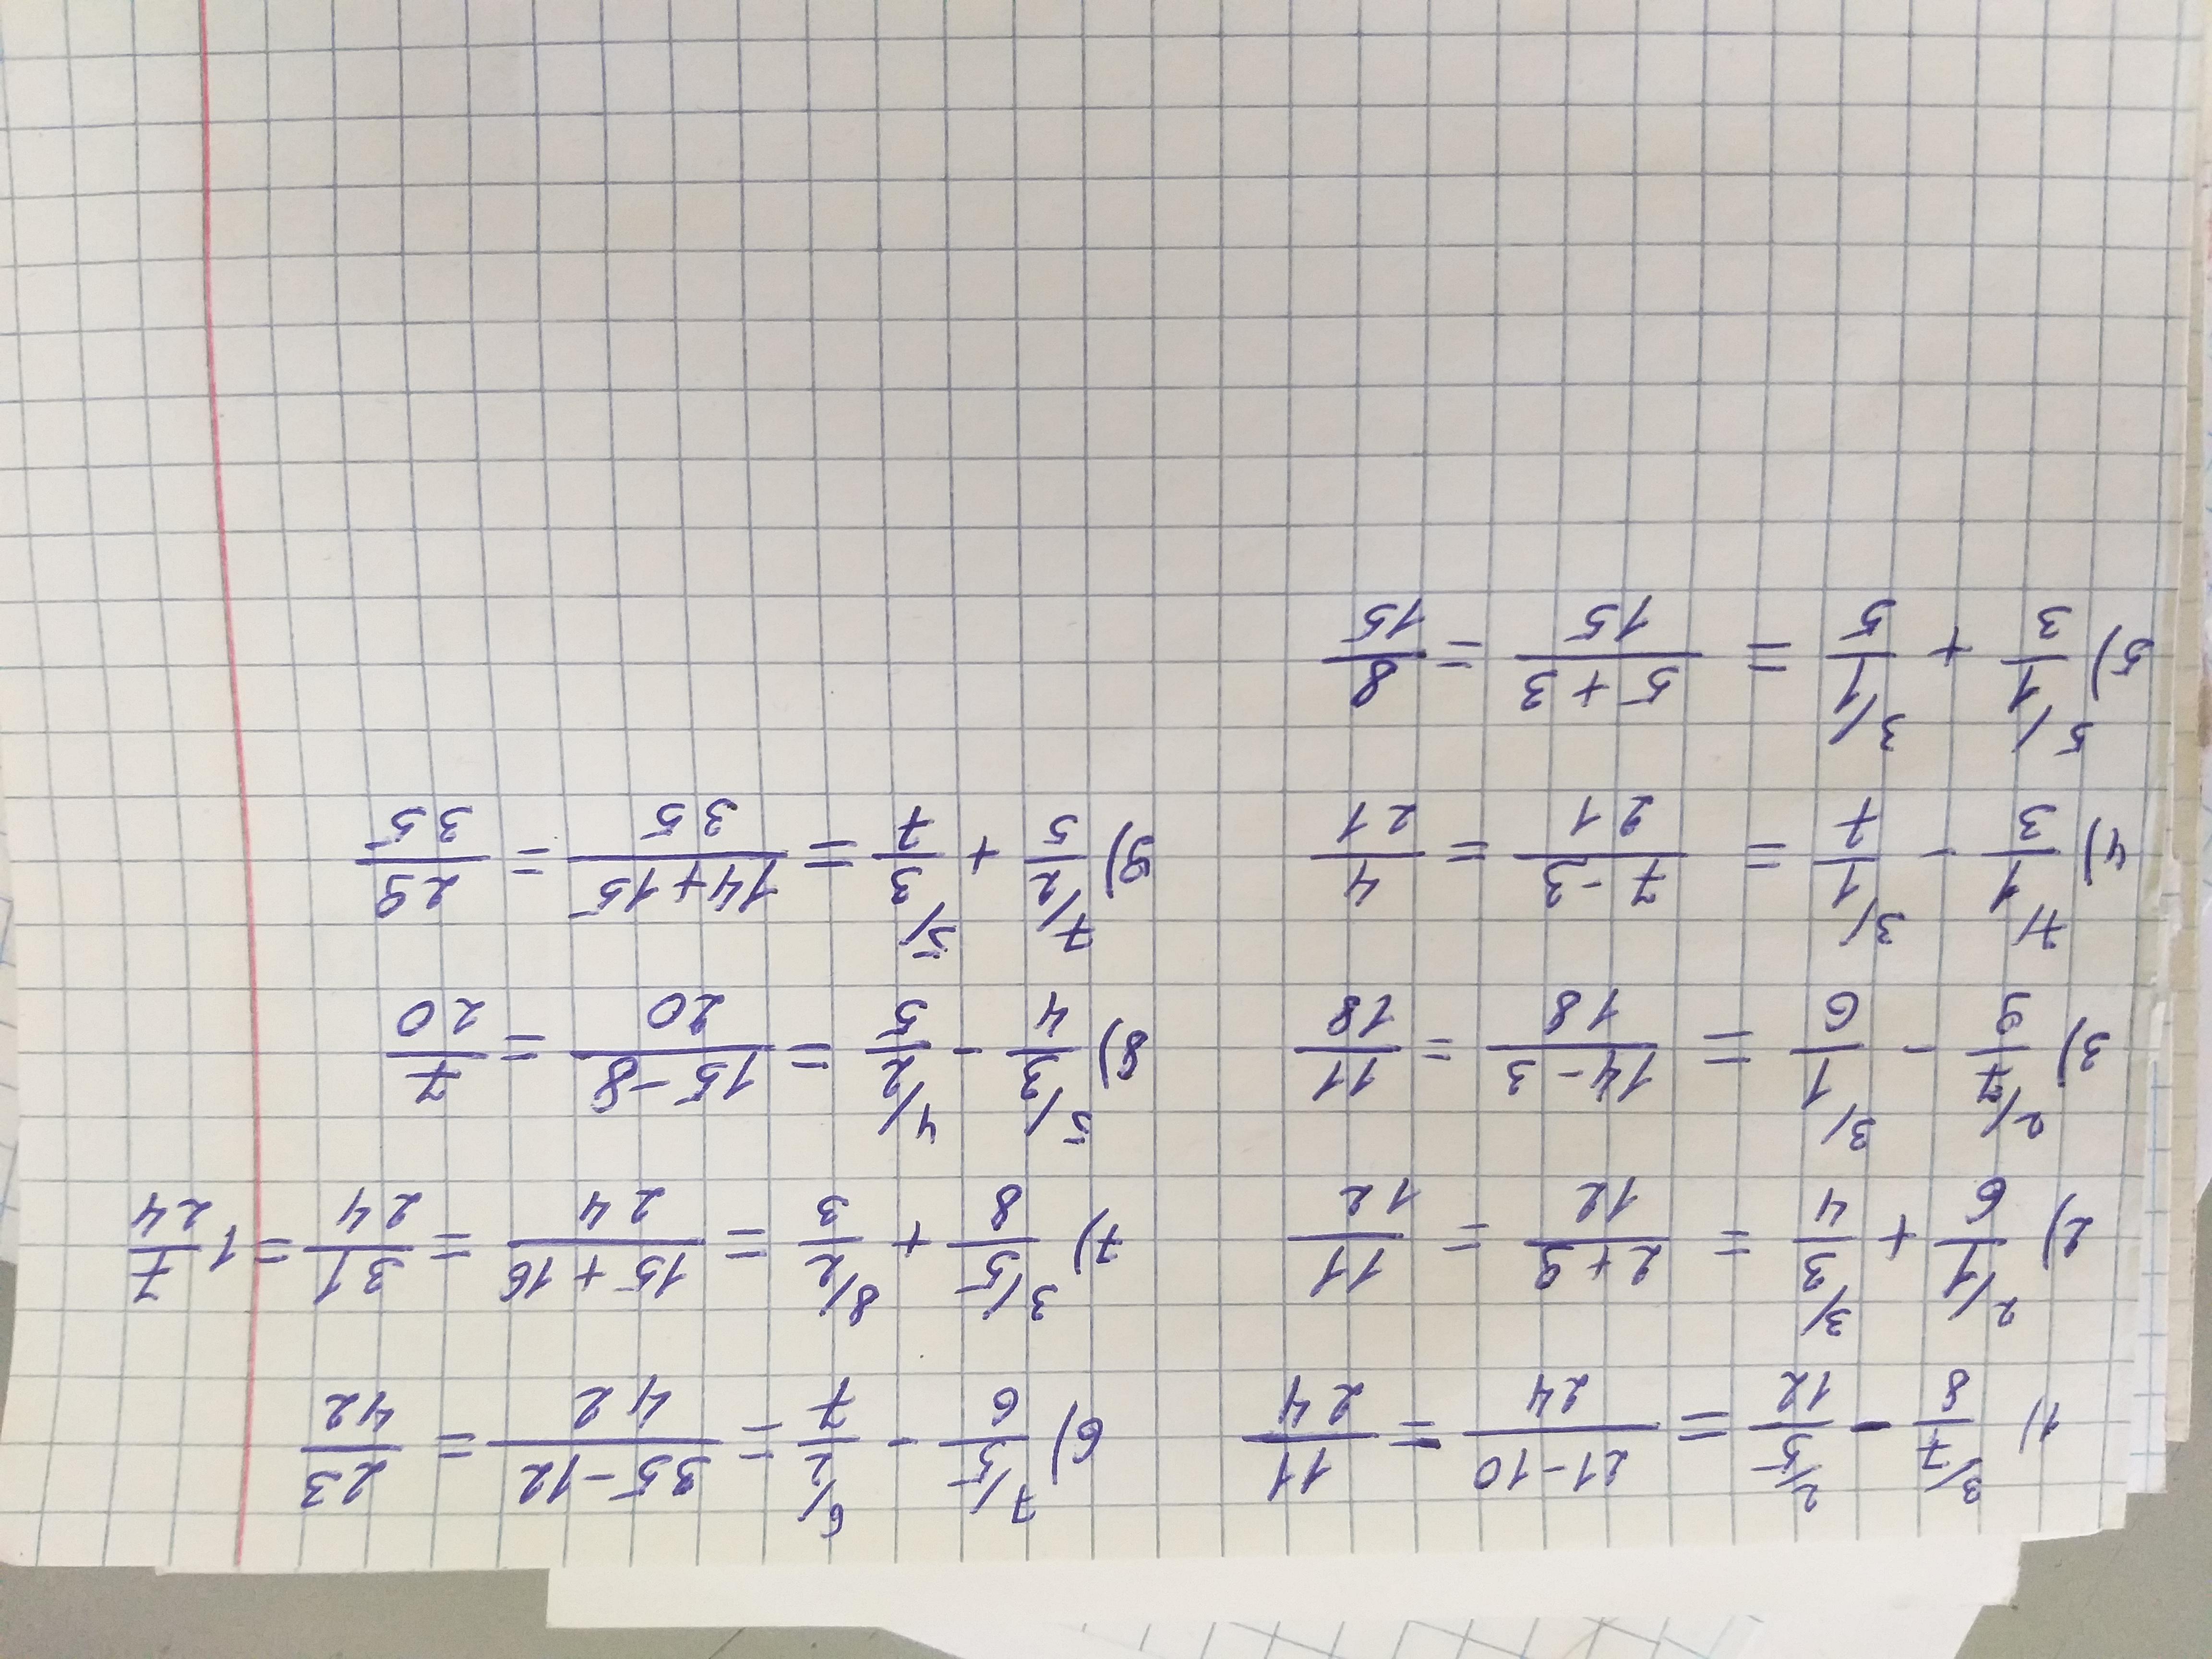 1) ³⁄7/8 - ²⁄5/12 = (21-10)/24 = 11/24
2) ²⁄1/6 + ³⁄3/4 = (2+9)/12 = 11/12
3) ²⁄7/9 - ³⁄1/6 = (14-3)/18 = 11/18
4) ⁷⁄1/3 - ³⁄1/7 = (7-3)/21 = 4/21
5) ⁵⁄1/3 + ³⁄1/5 = (5+3)/15 = 8/15
6) ⁷⁄5/6 - ⁶⁄2/7 = (35-12)/42 = 23/42
7) ³⁄5/8 + ⁸⁄2/3 = (15+16)/24 = 31/24 = 1 7/24
8) ⁵⁄3/4 - ⁴⁄2/5 = (15-8)/20 = 7/20
9) ⁷⁄2/5 + ⁵⁄3/7 = (14+15)/35 = 29/35